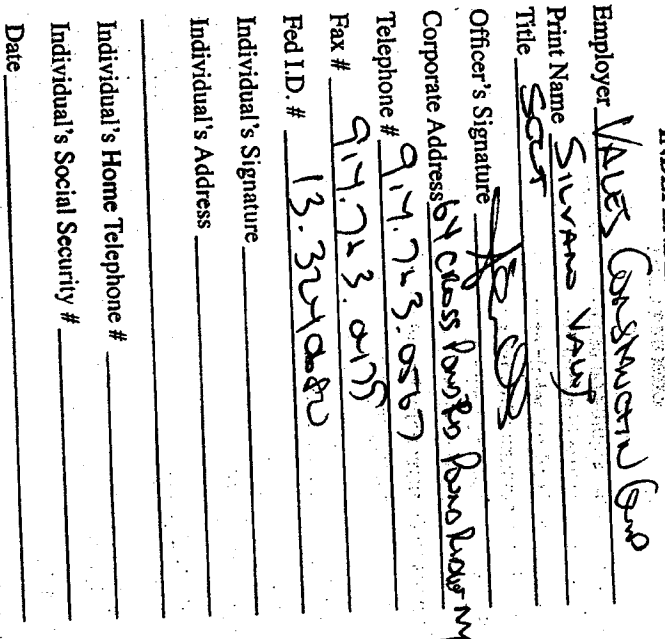 Employer VALES CONSTRUCTION CORP
Print Name SILVANO VALES
Title SECT
Officer's Signature
Corporate Address 64 CROSS POND RD. POUND RIDGE NY
Telephone # 914.723.0567
Fax # 914.723.0175
Fed I.D. # 13.324
Individual's Signature
Individual's Address
Individual's Home Telephone #
Individual's Social Security #
Date